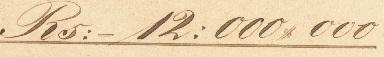 Rs:- 12:000$000